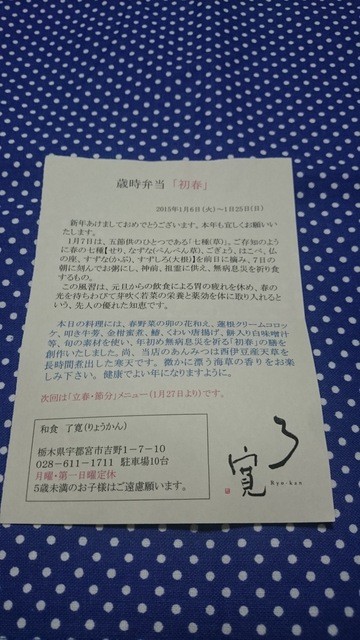 歳時弁当「初春」
2015年1月6日(火)〜1月25日(日)
新年あけましておめでとうございます。本年も宜しくお願いいたします。
1月7日は、五節供のひとつである「七種(草)」。ご存知のように春の七種【せり、なずな(ぺんぺん草)、ごぎょう、はこべ、仏の座、すずな(かぶ)、すずしろ(大根)】を前日に摘み、7日の朝に刻んでお粥にし、神前、祖霊に供え、無病息災を祈り食するもの。
この風習は、元旦からの飲食による胃の疲れを休め、春の光を待ちわびて芽吹く若菜の栄養と薬効を体に取り入れるという、先人の優れた知恵です。
本日の料理には、春野菜の卯の花和え、蓮根クリームコロッケ、叩き牛蒡、金柑蜜煮、鰤、くわい唐揚げ、勝入り白味噌汁等、旬の素材を使い、年初め無病息災を祈る「初春」の膳を創作いたしました。尚、当店のあんみつは西伊豆産天草を長時間煮出した寒天です。微かに漂う海草の香りをお楽しみ下さい。健康でよい年になりますように。
次回は「立春・節分」メニュー(1月27日より)です。
和食 了寛(りょうかん)
栃木県宇都宮市吉野1-7-10
028-611-1711 駐車場10台
月曜・第一日曜定休
5歳未満のお子様はご遠慮願います。
了寛
Ryo-kan